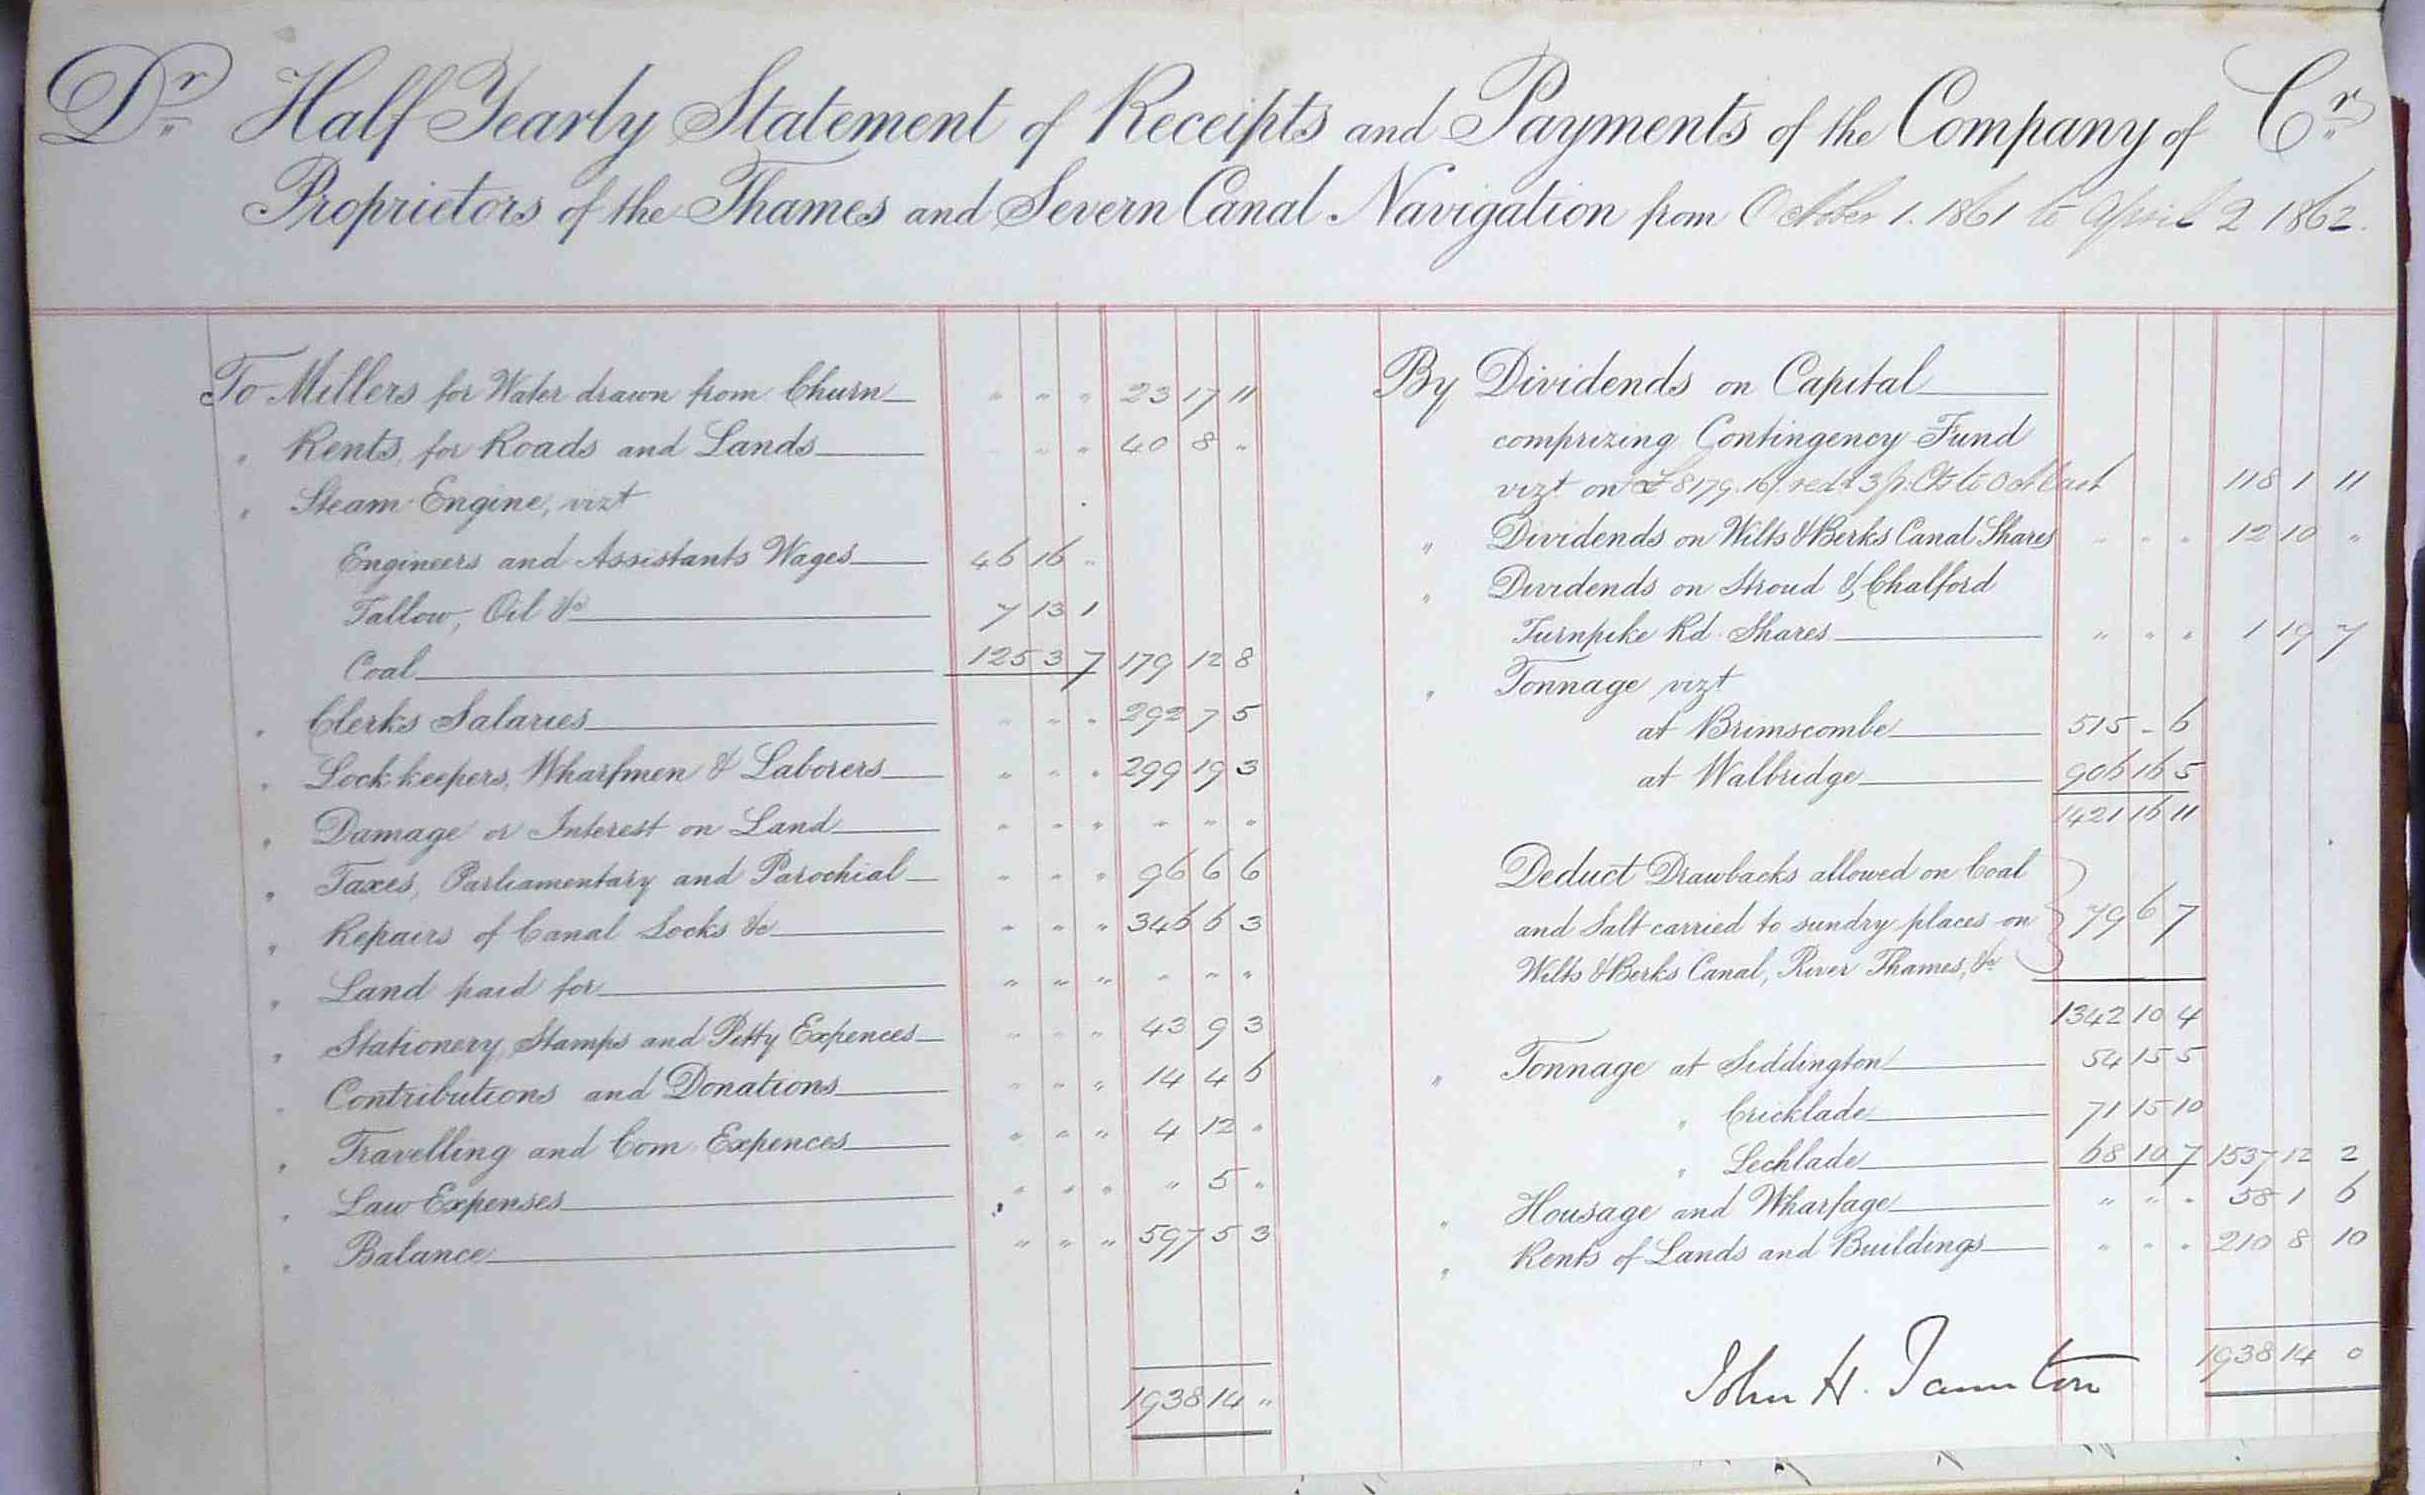 Dr Half Yearly Statement of Receipts and Payments of the Company of Cr
Proprietors of the Thames and Severn Canal Navigation from October 1. 1861 to April 2 1862.
To Millers for Water drawn from Churn " " " 23 17 11
" Rents, for Roads and Lands " " 40 8 "
" Steam Engine, vizt
Engineers and Assistants Wages 46 16 "
Tallow, Oil &c 7 13 1
Coal 125 3 7 179 12 8
" Clerks Salaries " " " 292 7 5
" Lock keepers, Wharfmen & Laborers " " " 299 19 3
" Damage or Interest on Land " " " " " "
" Taxes, Parliamentary and Parochial " " " 96 6 6
" Repairs of Canal Locks &c " " " 346 6 3
" Land paid for " " " " " "
" Stationery Stamps and Petty Expences " " " 43 9 3
" Contributions and Donations " " " 14 4 6
" Travelling and Com. Expences " " " 4 12 "
" Law Expenses " " " " 5 "
" Balance " " " 597 5 3
1938 14 "
By Dividends on Capital
comprizing Contingency Fund
vizt on £8179.16/. red. 3 p. Cts to Oct last 118 1 11
" Dividends on Wilts & Berks Canal Shares " " " 12 10 "
" Dividends on Stroud & Chalford
Turnpike Rd. Shares " " " 1 19 7
" Tonnage vizt
at Brimscombe 515 - 6
at Walbridge 906 16 5
1421 16 11
Deduct Drawbacks allowed on Coal
and Salt carried to sundry places on 79 6 7
Wilts & Berks Canal, River Thames, &c
1342 10 4
" Tonnage at Siddington 54 15 5
" Cricklade 71 15 10
" Lechlade 68 10 7 1537 12 2
" Housage and Wharfage " " " 58 1 6
" Rents of Lands and Buildings " " " 210 8 10
1938 14 0
John H. Taunton